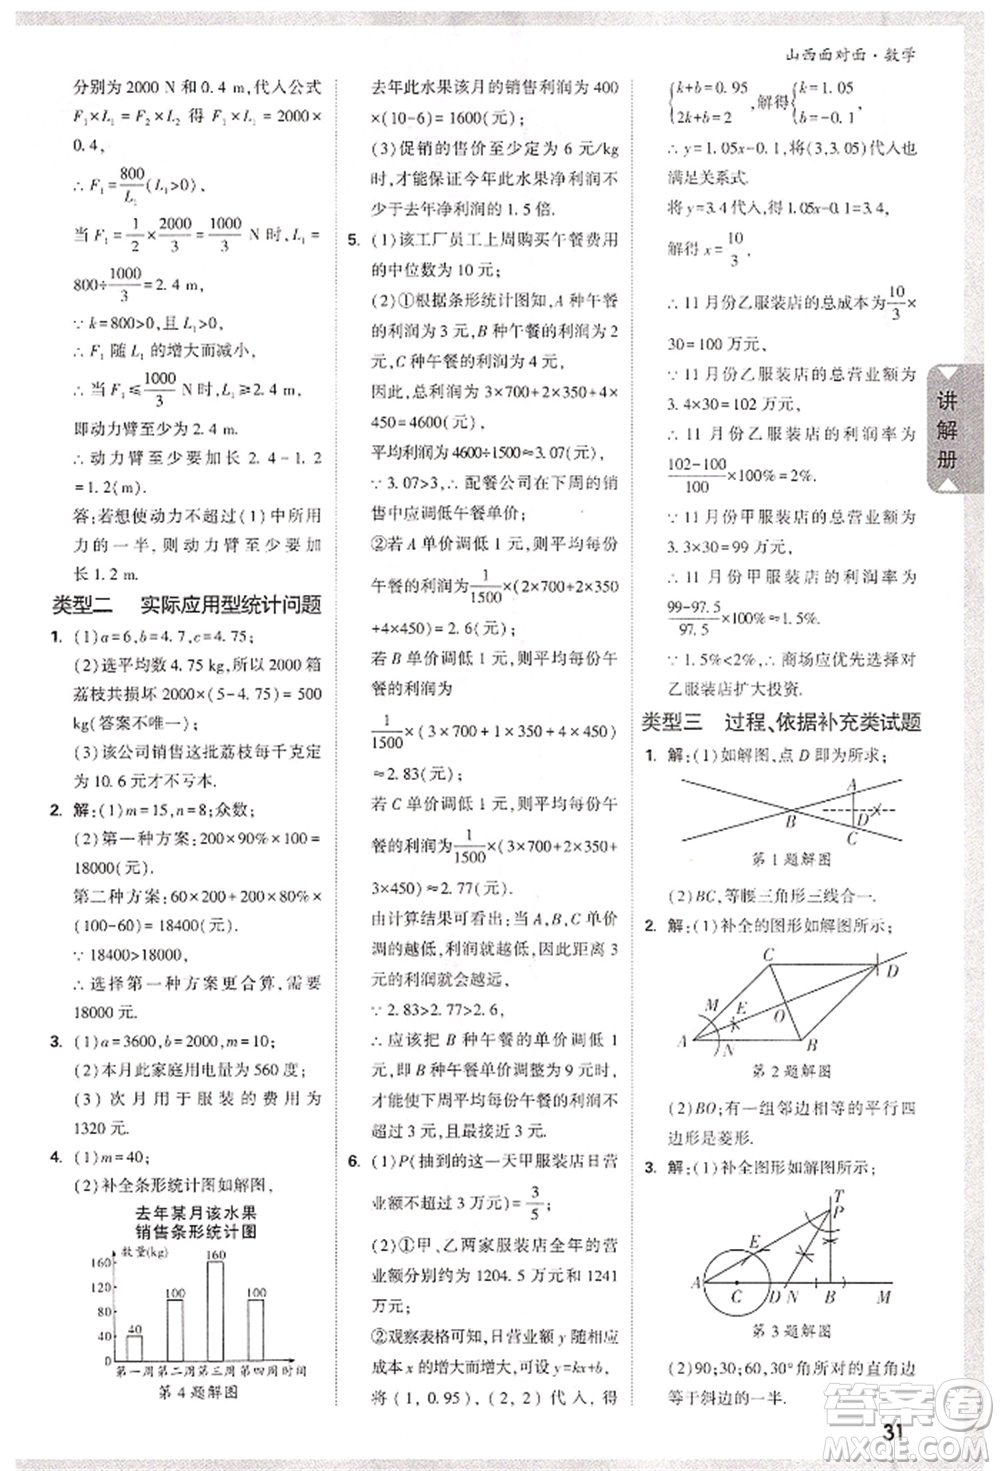 山西面对面·数学
分别为 2000 N 和 0.4 m,代人公式
F₁×L₁=F₂×L₂ 得 F₁×L₁=2000×
0.4,
∴F₁=800/L₁(L₁>0),
当 F₁=1/2×2000/3=1000/3 时,L₁=
800÷1000/3=2.4(m),
∵k=800>0,
∴F₁ 随 L₁ 的增大而减小,
∴当 F₁≤1000/3 时,L₁≥2.4,
即动力臂至少为 2.4 m.
∴动力臂至少要加长 2.4-1.2=
1.2(m).
答:若想使动力不超过(1)中所用
力的一半,则动力臂至少要加长
1.2 m.
类型二 实际应用型统计问题
1. (1)a=6,b=4.7,c=4.75;
(2)选平均数 4.75 kg,所以 2000 箱
荔枝共损坏 2000×(5-4.75)=500
kg(答案不唯一);
(3)该公司销售这批荔枝每千克定
为 10.6 元才不亏本.
2. 解:(1)m=15,n=8;众数;
(2)第一种方案:200×90%×100=
18000(元).
第二种方案:60×200+200×80%×
(100-60)=18400(元).
∵18400>18000,
∴选择第一种方案更合算,需要
18000 元;
3. (1)a=3600,b=2000,m=10;
(2)本月此家庭用电量为 560 度;
(3)次月用于服装的费用为
1320 元.
4. (1)m=40;
(2)补全条形统计图如解图,
去年某月该水果
销售条形统计图
数量(kg)
160
120
80
40
0
40
100
160
100
第一周 第二周 第三周 第四周 时间
第 4 题解图
去年此水果该月的销售利润为 400
×(10-6)=1600(元);
(3)促销的售价至少定为 6 元/kg
时,才能保证今年此水果净利润不
少于去年净利润的 1.5 倍.
5. (1)该工厂员工上周购买午餐费用
的中位数为 10 元;
(2)①根据条形统计图知,A 种午餐
的利润为 3 元,B 种午餐的利润为
2 元,C 种午餐的利润为 4 元,
因此,总利润为 3×700+2×350+4×
450=4600(元),
平均利润为 4600÷1500≈3.07(元),
∵3.07>3,∴配餐公司在下周的销
售中应调低午餐单价;
②若 A 单价调低 1 元,平均每份
午餐的利润为 1/1500×(2×700+2×350
+4×450)=2.6(元);
若 B 单价调低 1 元,平均每份午
餐的利润为
1/1500×(3×700+1×350+4×450)
≈2.83(元);
若 C 单价调低 1 元,平均每份午
餐的利润为 1/1500×(3×700+2×350+
3×450)≈2.77(元).
由计算结果可看出:当 A,B,C 单价
调的越低,利润越大,但距离 3
元的利润就会越远,
∵2.83>2.77>2.6,
∴应该把 B 种午餐的单价调低 1
元,即调低后 B 种午餐为 9 元时
能使下周平均每份午餐的利润更
大,且最接近 3 元.
6. (1)P(抽到的这一天甲服装店日营
业额不超过 3 万元)=3/5;
(2)①甲、乙两家服装店全年的营
业额分别约为 1204.5 万元和 1241
万元;
②观察表格可知,日营业额 y 随 x 的
增大而增大,可设 y=kx+b(k≠0),
将(1,0.95),(2,2)代入,得
k+b=0.95
2k+b=2
,解得
k=1.05
b=-0.1
,
∴y=1.05x-0.1,将(3,3.05)代人也
满足关系式.
将 y=3.4 代人,得 1.05x-0.1=3.4,
解得 x=10/3.
∴11 月份乙服装店的总成本为10/3×
30=100(万元).
∵11 月份乙服装店的总营业额为
3.4×30=102 万元,
∴11 月份乙服装店的利润率为
102-100/100×100%=2%;
∵11 月份甲服装店的总营业额为
3.3×30=99 万元,
∴11 月份甲服装店的利润率为
99-97.5/97.5×100%≈1.5%.
∵1.5%<2%,∴商场应优先选择对
乙服装店扩大投资.
类型三 过程、依据补充类试题
1. 解:(1)如解图,点 D 即为所求;
A
B
D
C
第 1 题解图
(2)BC,等腰三角形三线合一.
2. 解:(1)补全的图形如解图所示;
C
D
M
E
O
A
N
B
第 2 题解图
(2)BO;有一组邻边相等的平行四
边形是菱形.
3. 解:(1)补全图形如解图所示;
T
P
E
A
C
D
N
B
M
第 3 题解图
(2)90;30;60,30°角所对的直角边
等于斜边的一半.
讲解册
31
答案圈
MXQE.COM